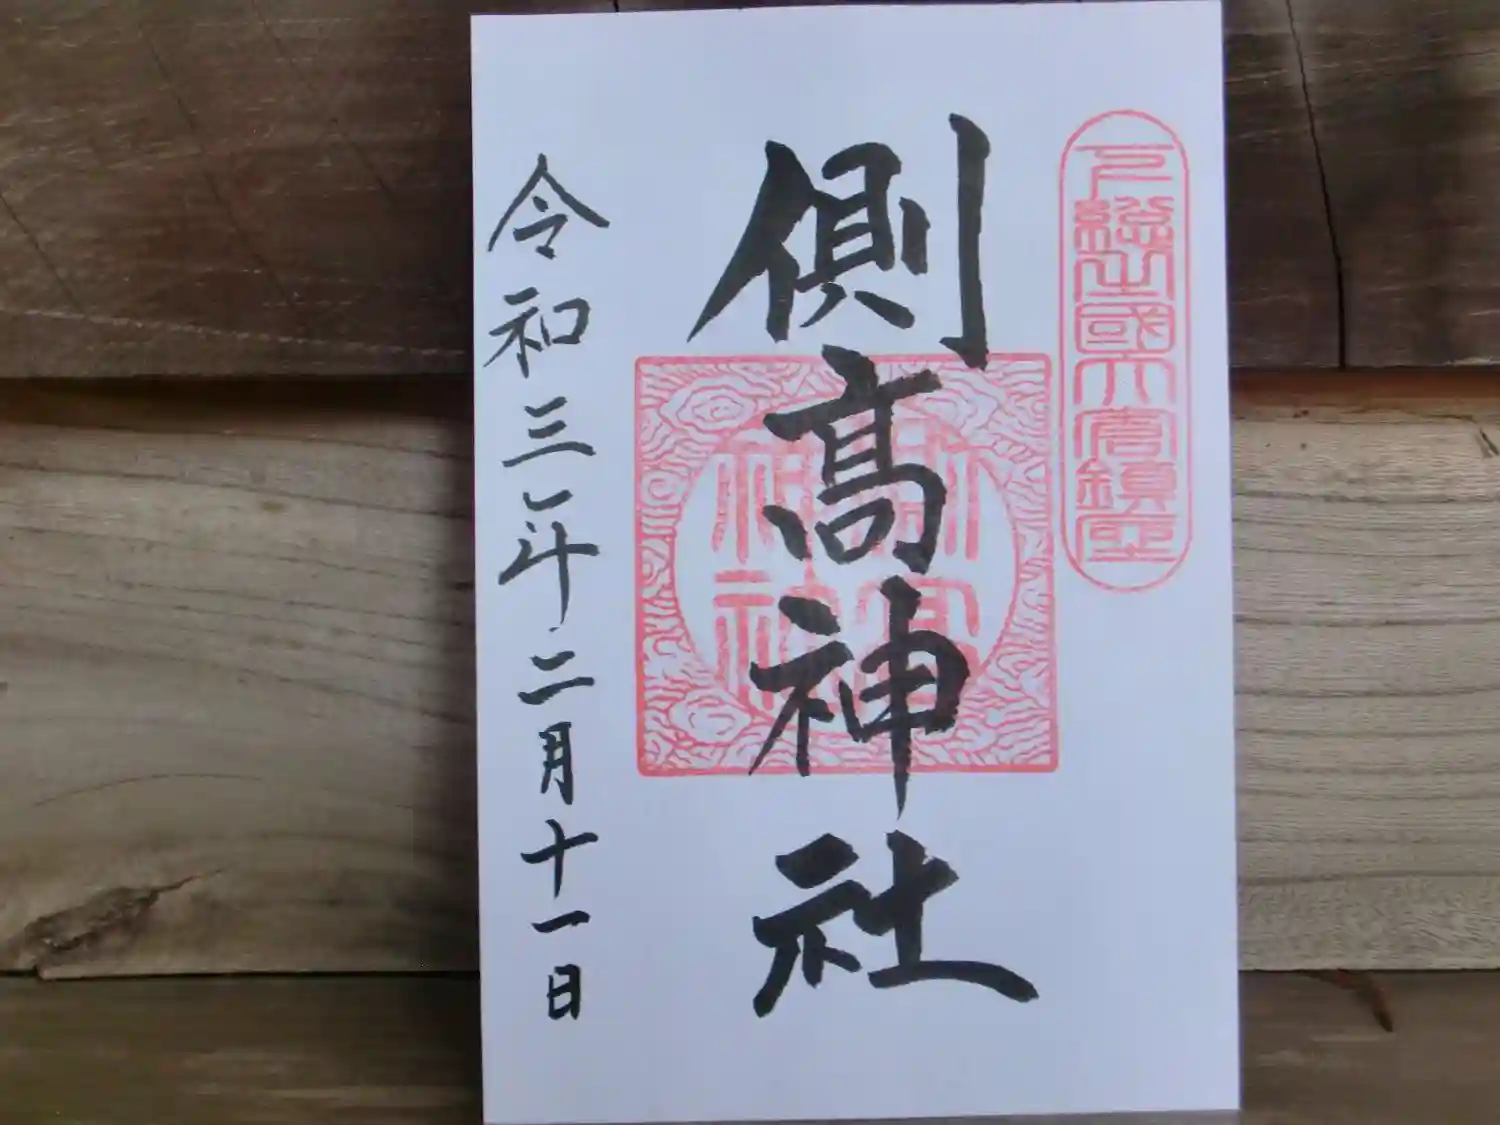 下総之國大倉鎮座
側髙神社
側高神社
令和三年二月十一日